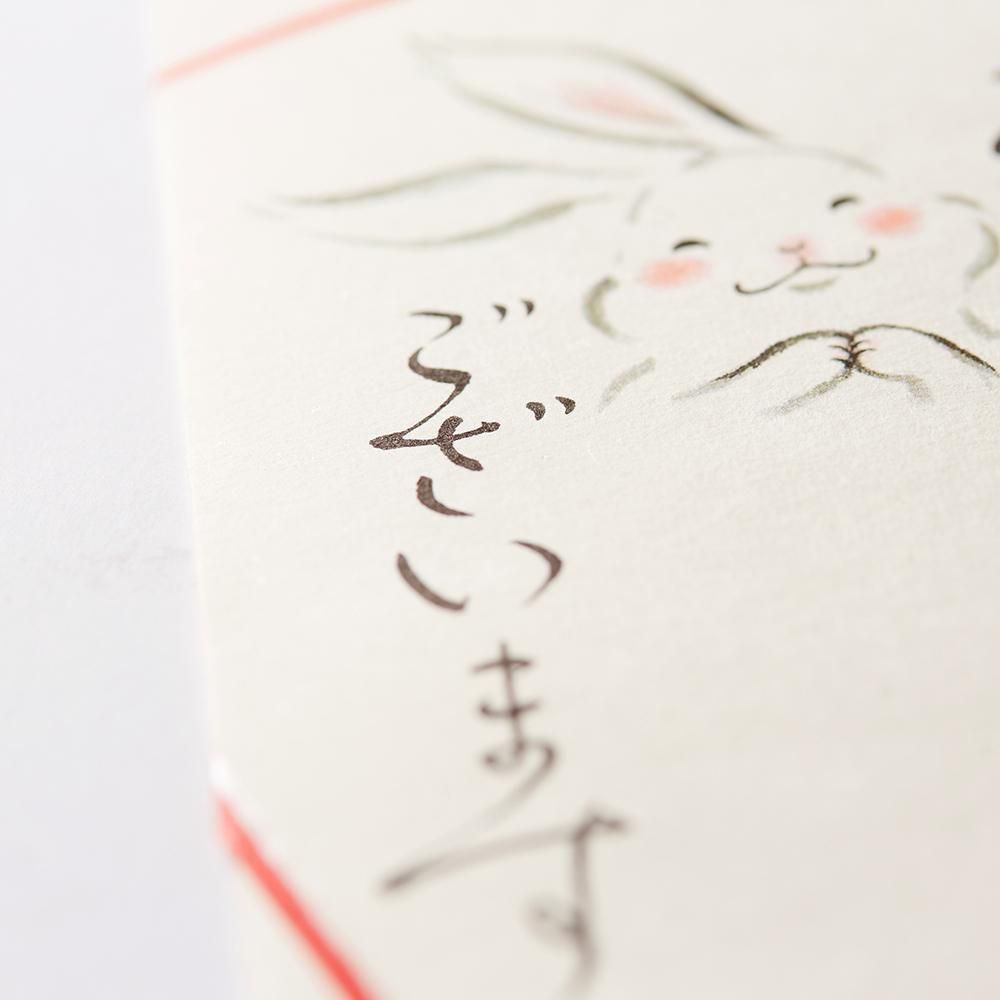 ございます